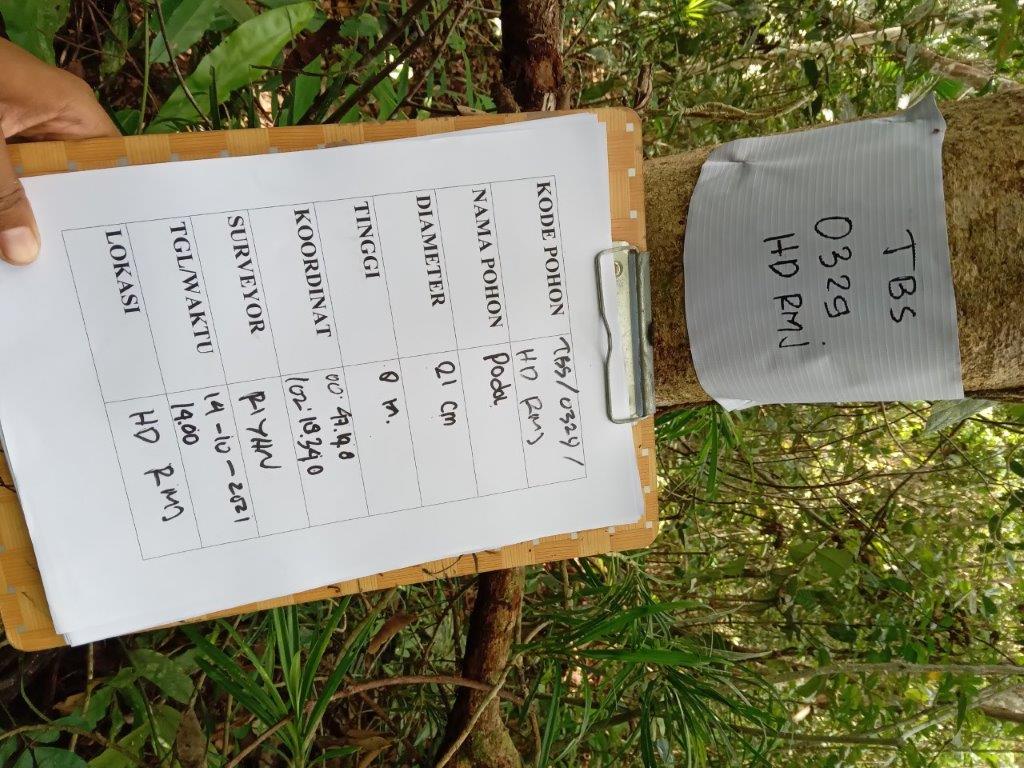 TBS
0329
HD RMJ
KODE POHON TBS/0329/
HD RMJ
NAMA POHON
DIAMETER 21 cm
TINGGI 8 m.
KOORDINAT
SURVEYOR RIYAN
TGL/WAKTU 14-10-2021
14.00
LOKASI HD RMJ